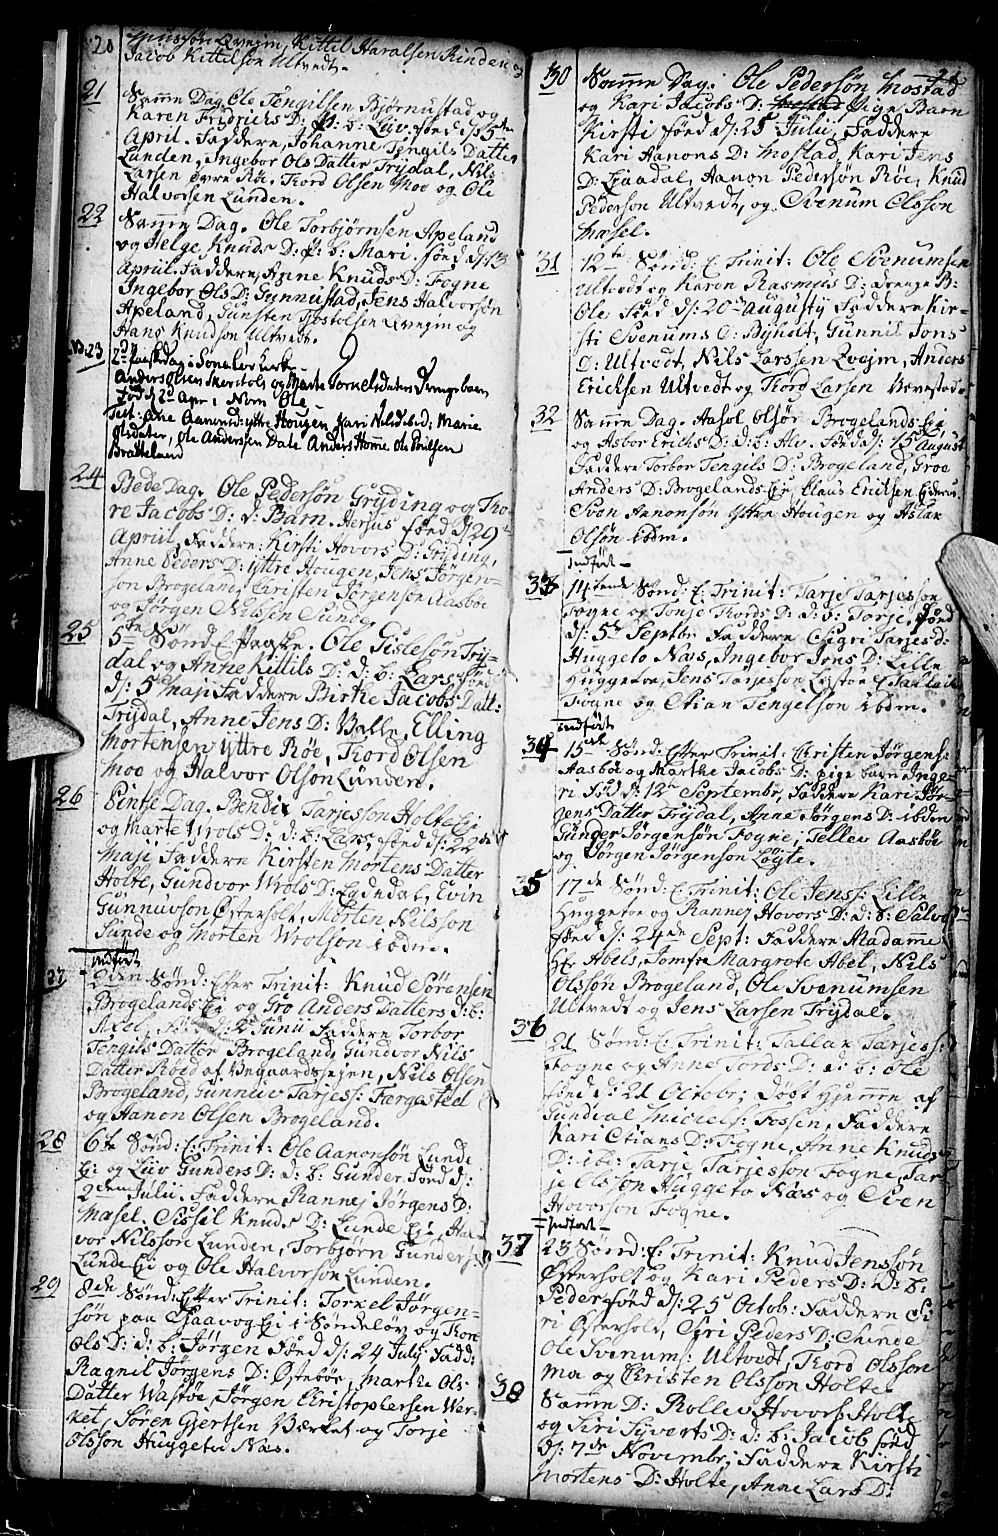 20
Qvejm, Kittil Haralsen Rinden og
Jacob Kittilson Ultvedt.
21
Samme Dag Ole Tengilsen Bjørnustad og
Karen Fridrichs D: P: b: Liv. fønd d: 5te
April. Faddere, Johanne Tengils Datter
Lunden, Ingebor Ols Datter Trydal, Nils
Larsen øvre Røe. Tiord Olsen Moe og Ole
Halvorsen Lunden.
22
Samme Dag. Ole Torbjørnsen Apeland
og Helge Knuds D: P: b: Mari. fønd d: 13
April. Faddere, Anne Knuds D: Fogne
Ingebor Ols D: Gunnustad, Jens Halvorsøn
Apeland, Gunsten Tostolsen Qvejm og
Hans Knudson Ultvedt.
NB: 23
2den Paaskedag i Sønneløv kirke
Anders Olsen Skarstols og Marte Torkelsdaters Drengebarn
Fød d 2 Apr: Nom Ole
Test: Ane Aanonsd: yttre Hougen, Kari Nilsd: ibid: Marie
Olsdater, Ole Andersen Dale Anders Homme Ole Poulsen
Bratteland
24
Bede Dag. Ole Pedersøn Gryding og Tho-
re Jacobs D: d. Barn. Herjus fønd d: 29
April, Faddere: Kirsti Hovors D: Gryding,
Anne Peders D: yttre Hougen, Jens Jørgen-
son Brogeland, Christen Jørgensøn Aasbøe
og Jørgen Nilssen Sunde.
25
5te Sønd: E: Paaske. Ole Gislesøn Try-
dal og Anne Kittils D: d. b: Lars fønd
d: 5 Maji Faddere Birthe Jacobs Datt:
Trydal, Anne Jens D: Valle, Elling
Mortensen yttre Røe, Tiord Olsen
Moe og Halvor Olson Lunden.
26
Pintse Dag. Bendix Tarjesson Holte Ei:
og Marte Wrols D: d: b: Lars, fønd d: 22de
Maji, Faddere Kirsten Mortens Datter
Holte, Gundvor Wrols D: Egdedal, Evin
Gunnuvson Østerholt, Morten Nilsson
Sunde og Morten Wrolson ibdm.
Indført
27
2den Sønd: Efter Trinit: Knud Sørensen
Brogelands Ei: og Gro Anders Datters d: b:
Axel, Junii Faddere Torbor
Tengils Datter Brogeland, Gundvor Nils
Datter Røed af Vegaardshejen, Nils Olsen
Brogeland, Gunnuv Tarjess: Fargested
og Aanon Olsen Brogeland.
28
6te Sønd: E: Trinit: Ole Aanonsøn Lunde
Ei: og Liiv Gunders D: d: b: Gunder fønd d:
2den Julii. Faddere Rannej Jørgens D:
Masel. Sissil Knuds D: Lunde Ei: Hal-
vor Nilsson Lunden, Torbjørn Gunders:
Lunde Ei: og Ole Halvorson Lunden.
29
8de Sønd: Efter Trinit: Torkel Jørgen-
søn paa Ejaavog Ei: i Søndeløv og Thore
Ols D: d: b: Jørgen Fønd d: 24 Julii Fadd:
Ragnil Jørgens D: Østebøe, Marthe Ols
Datter Wastøe, Jørgen Christophersen Wer-
ket, Søren Gjertsen Værket og Torje
Olsson Huggeto Næs.
21
30
Samme Dag. Ole Pedersøn Mostad
og Kari Jacobs D: Pige Barn
Kirsti fønd d: 25 Julii, Faddere
Kari Aanons D: Mostad, Kari Jens
D: Ejaadal, Aanon Pedersøn Røe, Knud
Pederson Ultvedt, og Svenum Olsson
Masel.
31
12te Sønd: E: Trinit: Ole Svenumsen
Ultvedt og Karen Rasmus D: drenge B:
Ole Fød d: 20de Augusty Faddere Kir-
sti Svenums D: Ultvedt, Gunnil Jons
D: Ultvedt, Nils Larssen Qvejm, Anders
Ericksen Ultvedt og Tiord Larsen Bevested.
32
Samme Dag. Aasol Olsøn Brogelands Ei:
og Asbor Erichs D: d: b: Alv. Fød d: 15 August
Faddere Torbor Tengils D: Brogeland, Groe
Anders D: Brogelands Ei: Claus Ericksen
Sven Aanonsøn Yttre Hougen og Aslak
Olsøn ibdm.
Indført
33
14tende Sønd: E: Trinit: Tarje Tarjesson
Fogne og Tonje Thords D: d: b: Torje, Fønd
d: 5te Septbr: Faddere Sigri Tarjes D:
Huggeto Næs, Ingebor Jons D: Lille
Huggetoe, Jens Tarjesson Lystøe
Fogne og Stian Tengelson ibdm.
Indført
34
15de Sønd: Efter Trinit: Christen Jørgense
Aasbøe og Marthe Jacobs D: pige barn Inge-
ri Fød d: 12te Septembr, Faddere Kari Jør-
gens Datter Trydal, Anne Jørgens D: ibdem
Gunder Jørgensøn Fogne, Tellev Aasbøe
og Jørgen Jørgenson Løyte.
35
17de Sønd: E: Trinit: Ole Jenss: Lille
Huggetoe og Rannej Hovors D: d: b: Salvo
fønd d: 24de Sept: Faddere Madamme
Abels, Jomfru Margrete Abel, Nils
Olssøn Brogeland, Ole Svenumsen
Ultvedt og Jens Larsen Trydal.
36
21 Sønd: E: Trinit: Tallak Tarjess:
Fogne og Anne Tords D: d: b: Ole
fønd d: 21 Octobr; Døbt hjemme af
Gundval Michels: Fossen, Faddere
Kari Stians D: Fogne, Anne Knuds
D: ibd: Tarje Tarjesson Fogne, Tar-
je Olsson Huggeto Næs og Sven
Hovorson Fogne.
Indført
37
23 Sønd: E: Trinit: Knud Jensøn
Østerholt og Kari Peders D: d: b:
Peder fønd d: 25 Octob: Faddere Si-
ri Østerholt, Siri Peders D: Sunde
Ole Svenums: Ultvedt, Thord Olsson
Mo og Christen Olsson Holte.
38
Samme D: Rollev Hovors: Holt:
og Siri Siverts D: d: b: Jacob fønd
d: 7de Novembr, Faddere Kirsti
Mortens D: Holte, Anne Lars D: